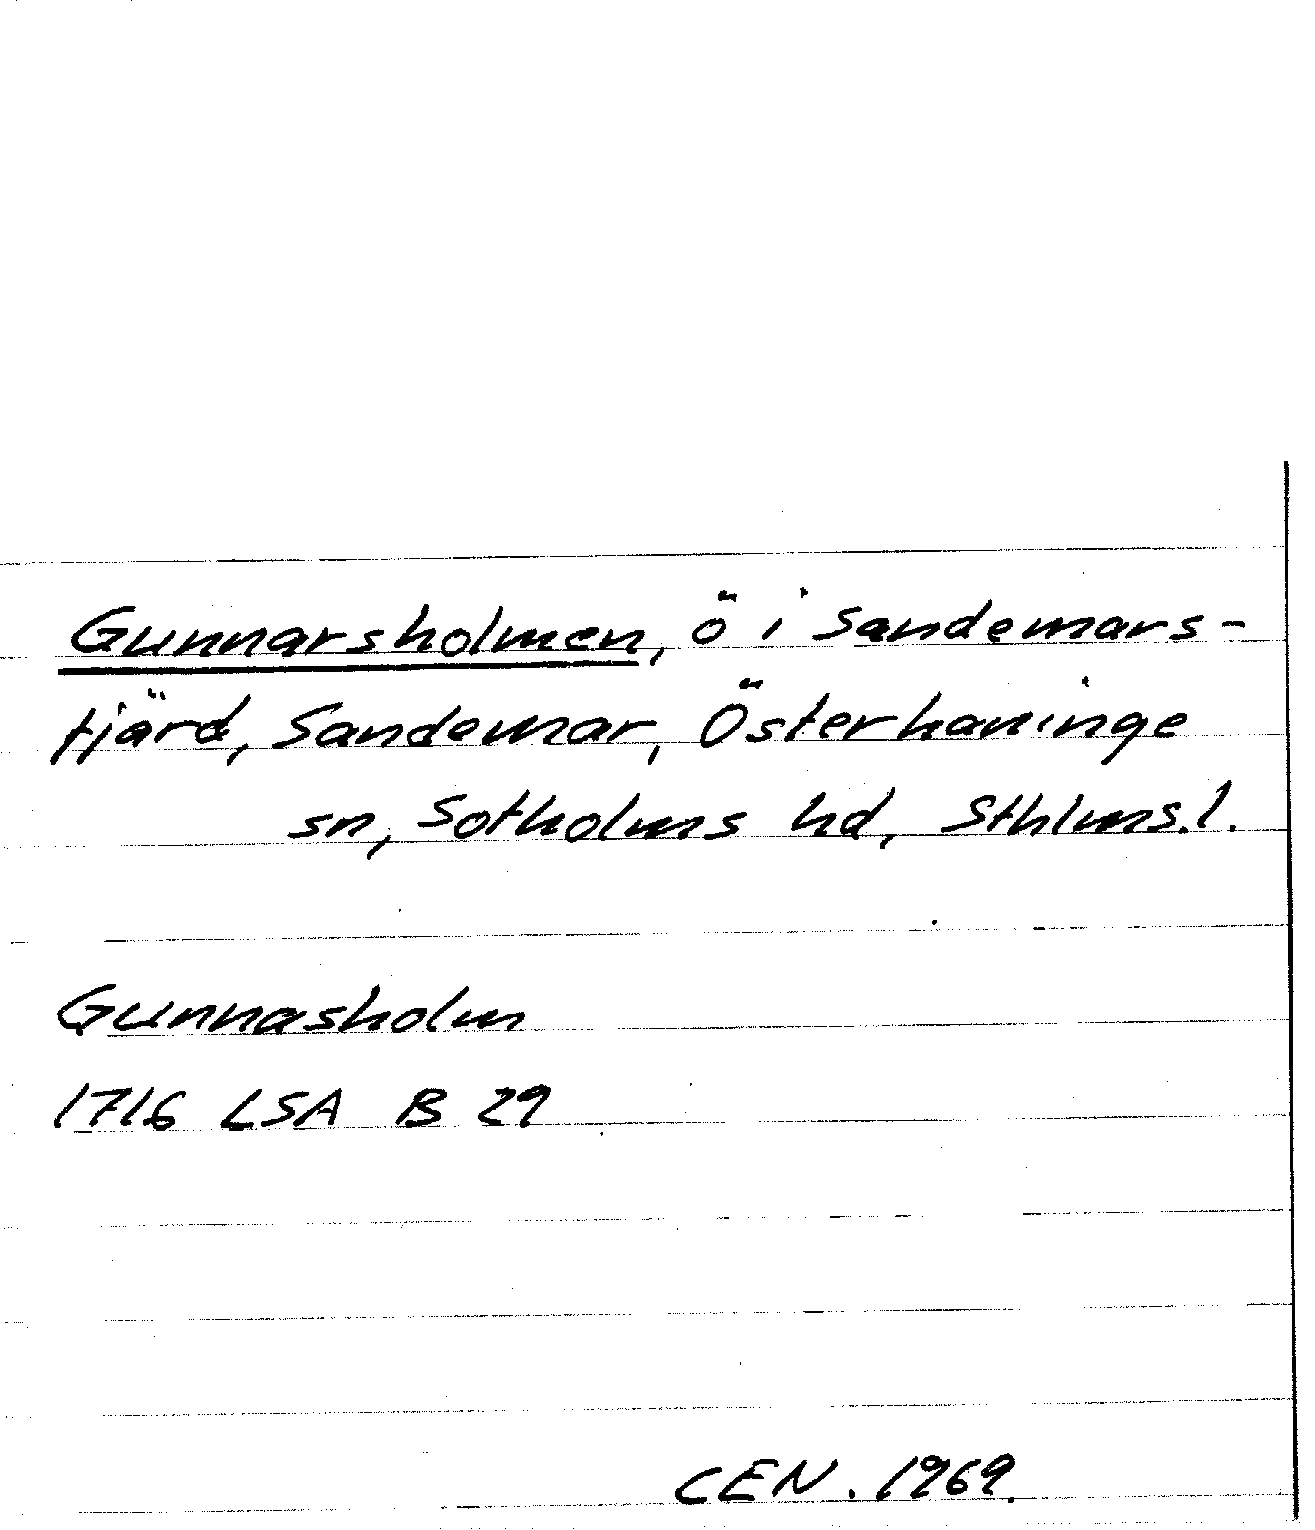 Gunnarsholmen, ö i Sandemars-
fjärd, Sandemar, Österhaninge
sn, Sotholms hd, Sthlms.l.
Gunnasholm
1716 LSA B 29
CEN. 1969.